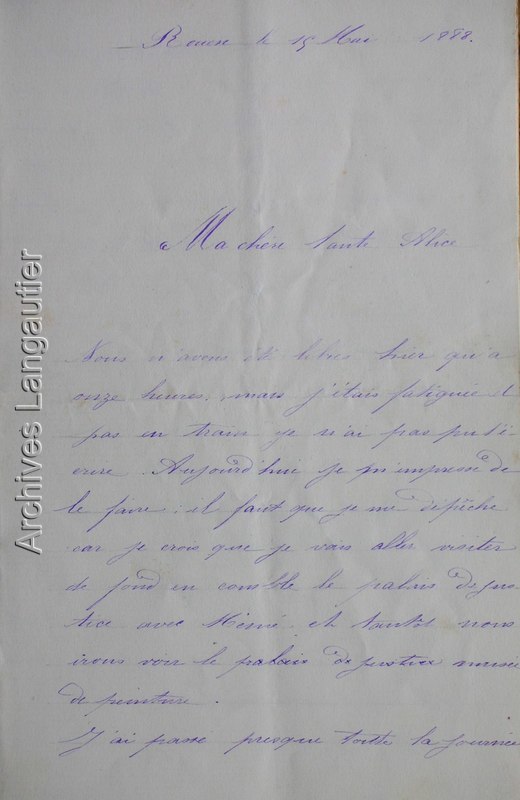 Rouen le 15 Mai 1888.
Ma chère tante Alice
Nous n'avons été libres hier qu'à
onze heures, mais j'étais fatiguée et
pas en train je n'ai pas pu t'é-
crire. Aujourd'hui je m'empresse de
le faire : il faut que je me dépêche
car je crois que je vais aller visiter
de fond en comble le palais de jus
tice avec et tantôt nous
irons voir le palais de justice musée
de peinture.
J'ai passé presque toute la journée
Archives Langautier